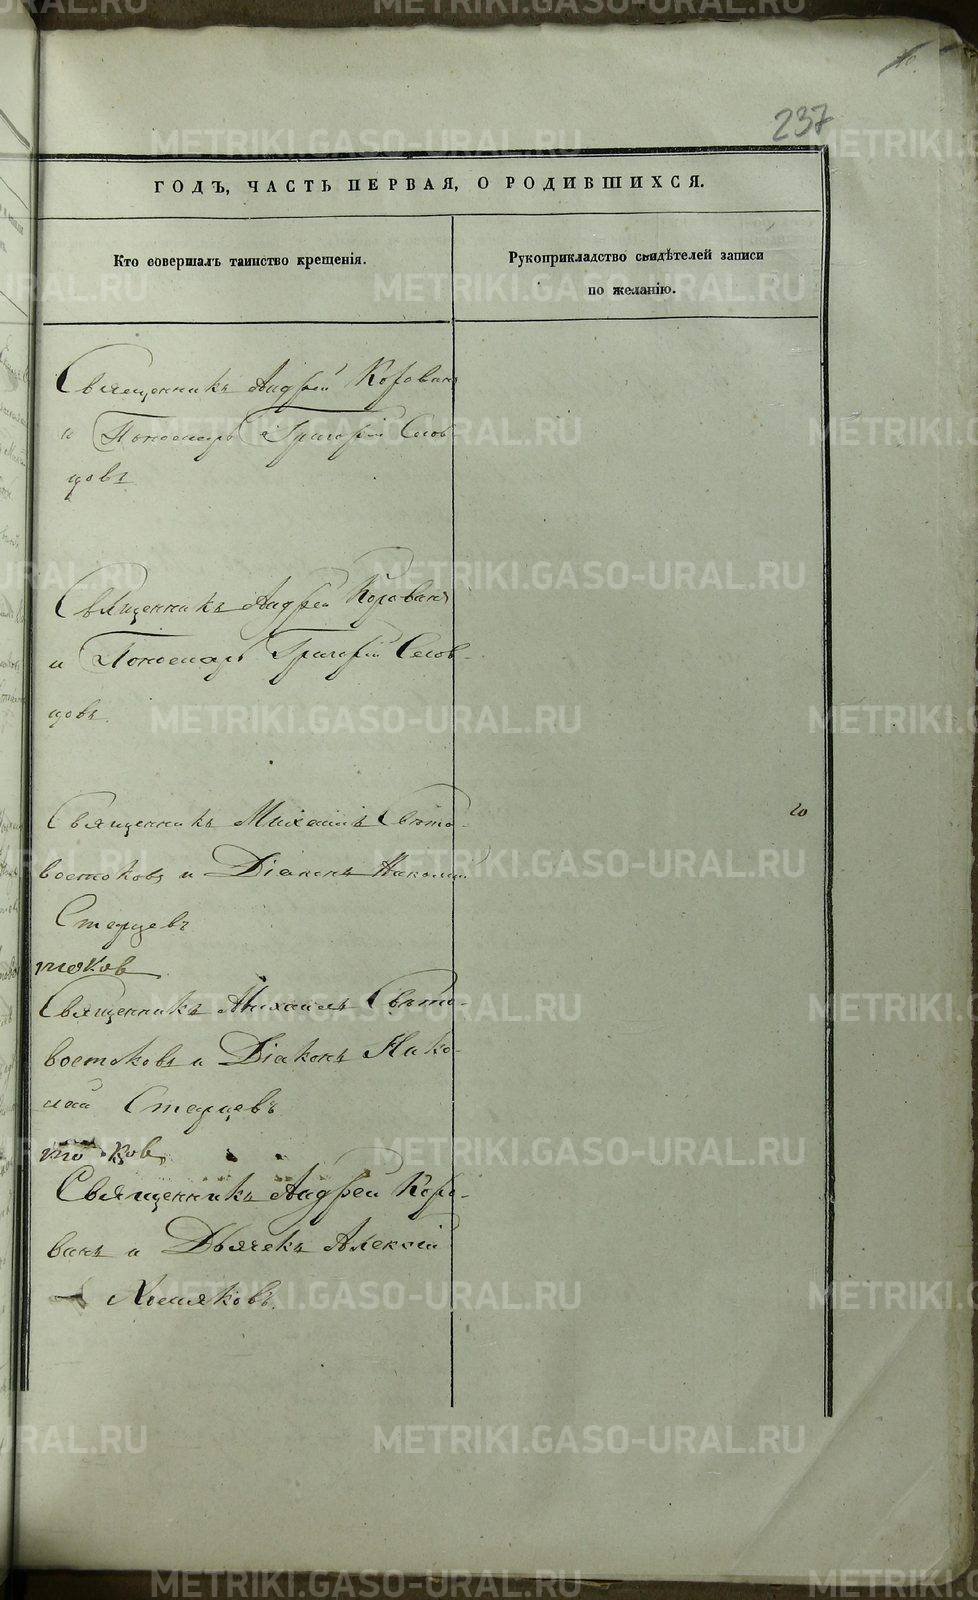 237
ГОДЪ, ЧАСТЬ ПЕРВАЯ, О РОДИВШИХСЯ.
Кто совершалъ таинство крещенія.
Рукоприкладство свидѣтелей записи
по желанію.
Священникъ Андрей Корован
и Пономарь Григорій Слов-
цовъ
Священникъ Андрей Корованъ
и Пономарь Григорій Слов-
цовъ.
Священникъ Михаилъ Свѣто-
востоковъ и Діаконъ Николай
Старцевъ
Священникъ Михаилъ Свѣто-
востоковъ и Діаконъ Нико-
лай Старцевъ
Священникъ Андрей Коро-
ванъ и Дьячекъ Алексій
Хомяковъ.
METRIKI.GASO-URAL.RU